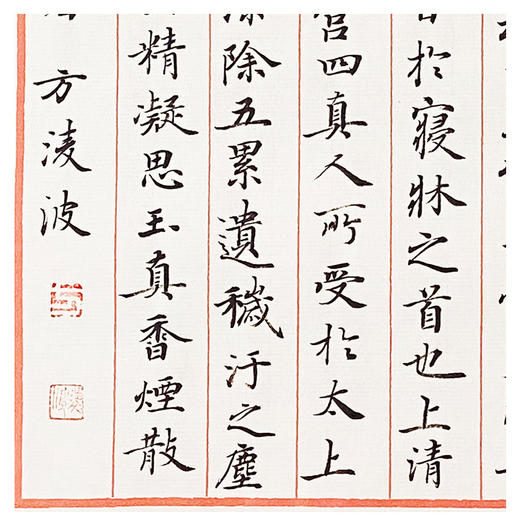 於寢牀之首也上清
四真人所受於太上
除五累遺穢汙之塵
精凝思玉真香煙散
方淩波